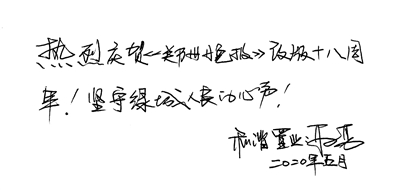 热烈庆祝《郑州晚报》改版十八周
年！坚守绿城人民的心声！
和谐置业
2020年五月